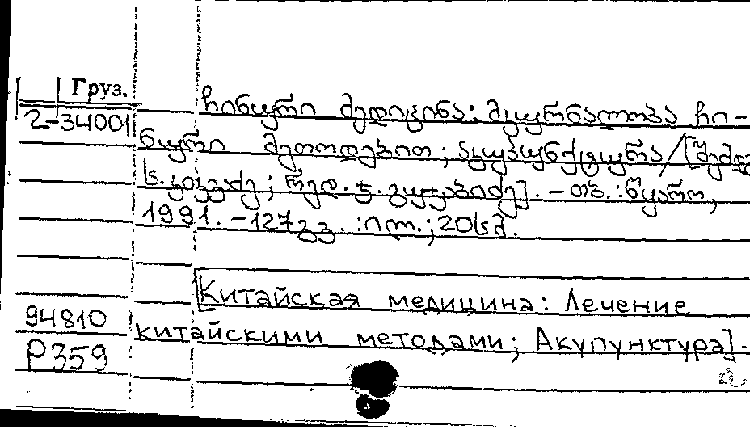 Груз.
2-34001
ჩინური მედიცინა: მკურნალობა ჩი-
ნური მეთოდებით; აკუპუნქტურა/[შემდ
ს. კიკვაძე; რედ.
]. - თბ.: წყარო,
1991. - 127გვ. :ილ.; 20სმ.
[Китайская медицина: Лечение
94810
китайскими методами; Акупунктура].
Р359